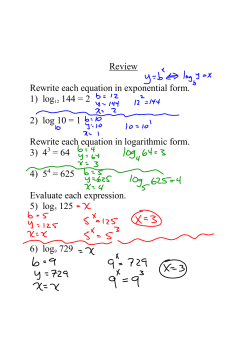 Review
y=b^x ⟺ log_b y = x
Rewrite each equation in exponential form.
1) log₁₂ 144 = 2 b = 12
y = 144 12² = 144
x = 2
2) log 10 = 1 b = 10
10 y = 10 10 = 10¹
x = 1
Rewrite each equation in logarithmic form.
3) 4³ = 64 b = 4 log₄ 64 = 3
y = 64
x = 3
4) 5⁴ = 625 b = 5
y = 625 log₅ 625 = 4
x = 4
Evaluate each expression.
5) log₅ 125 = x
b = 5 5^x = 125 x = 3
y = 125
x = x 5^x = 5³
6) log₉ 729 = x
b = 9 9^x = 729 x = 3
y = 729
x = x 9^x = 9³